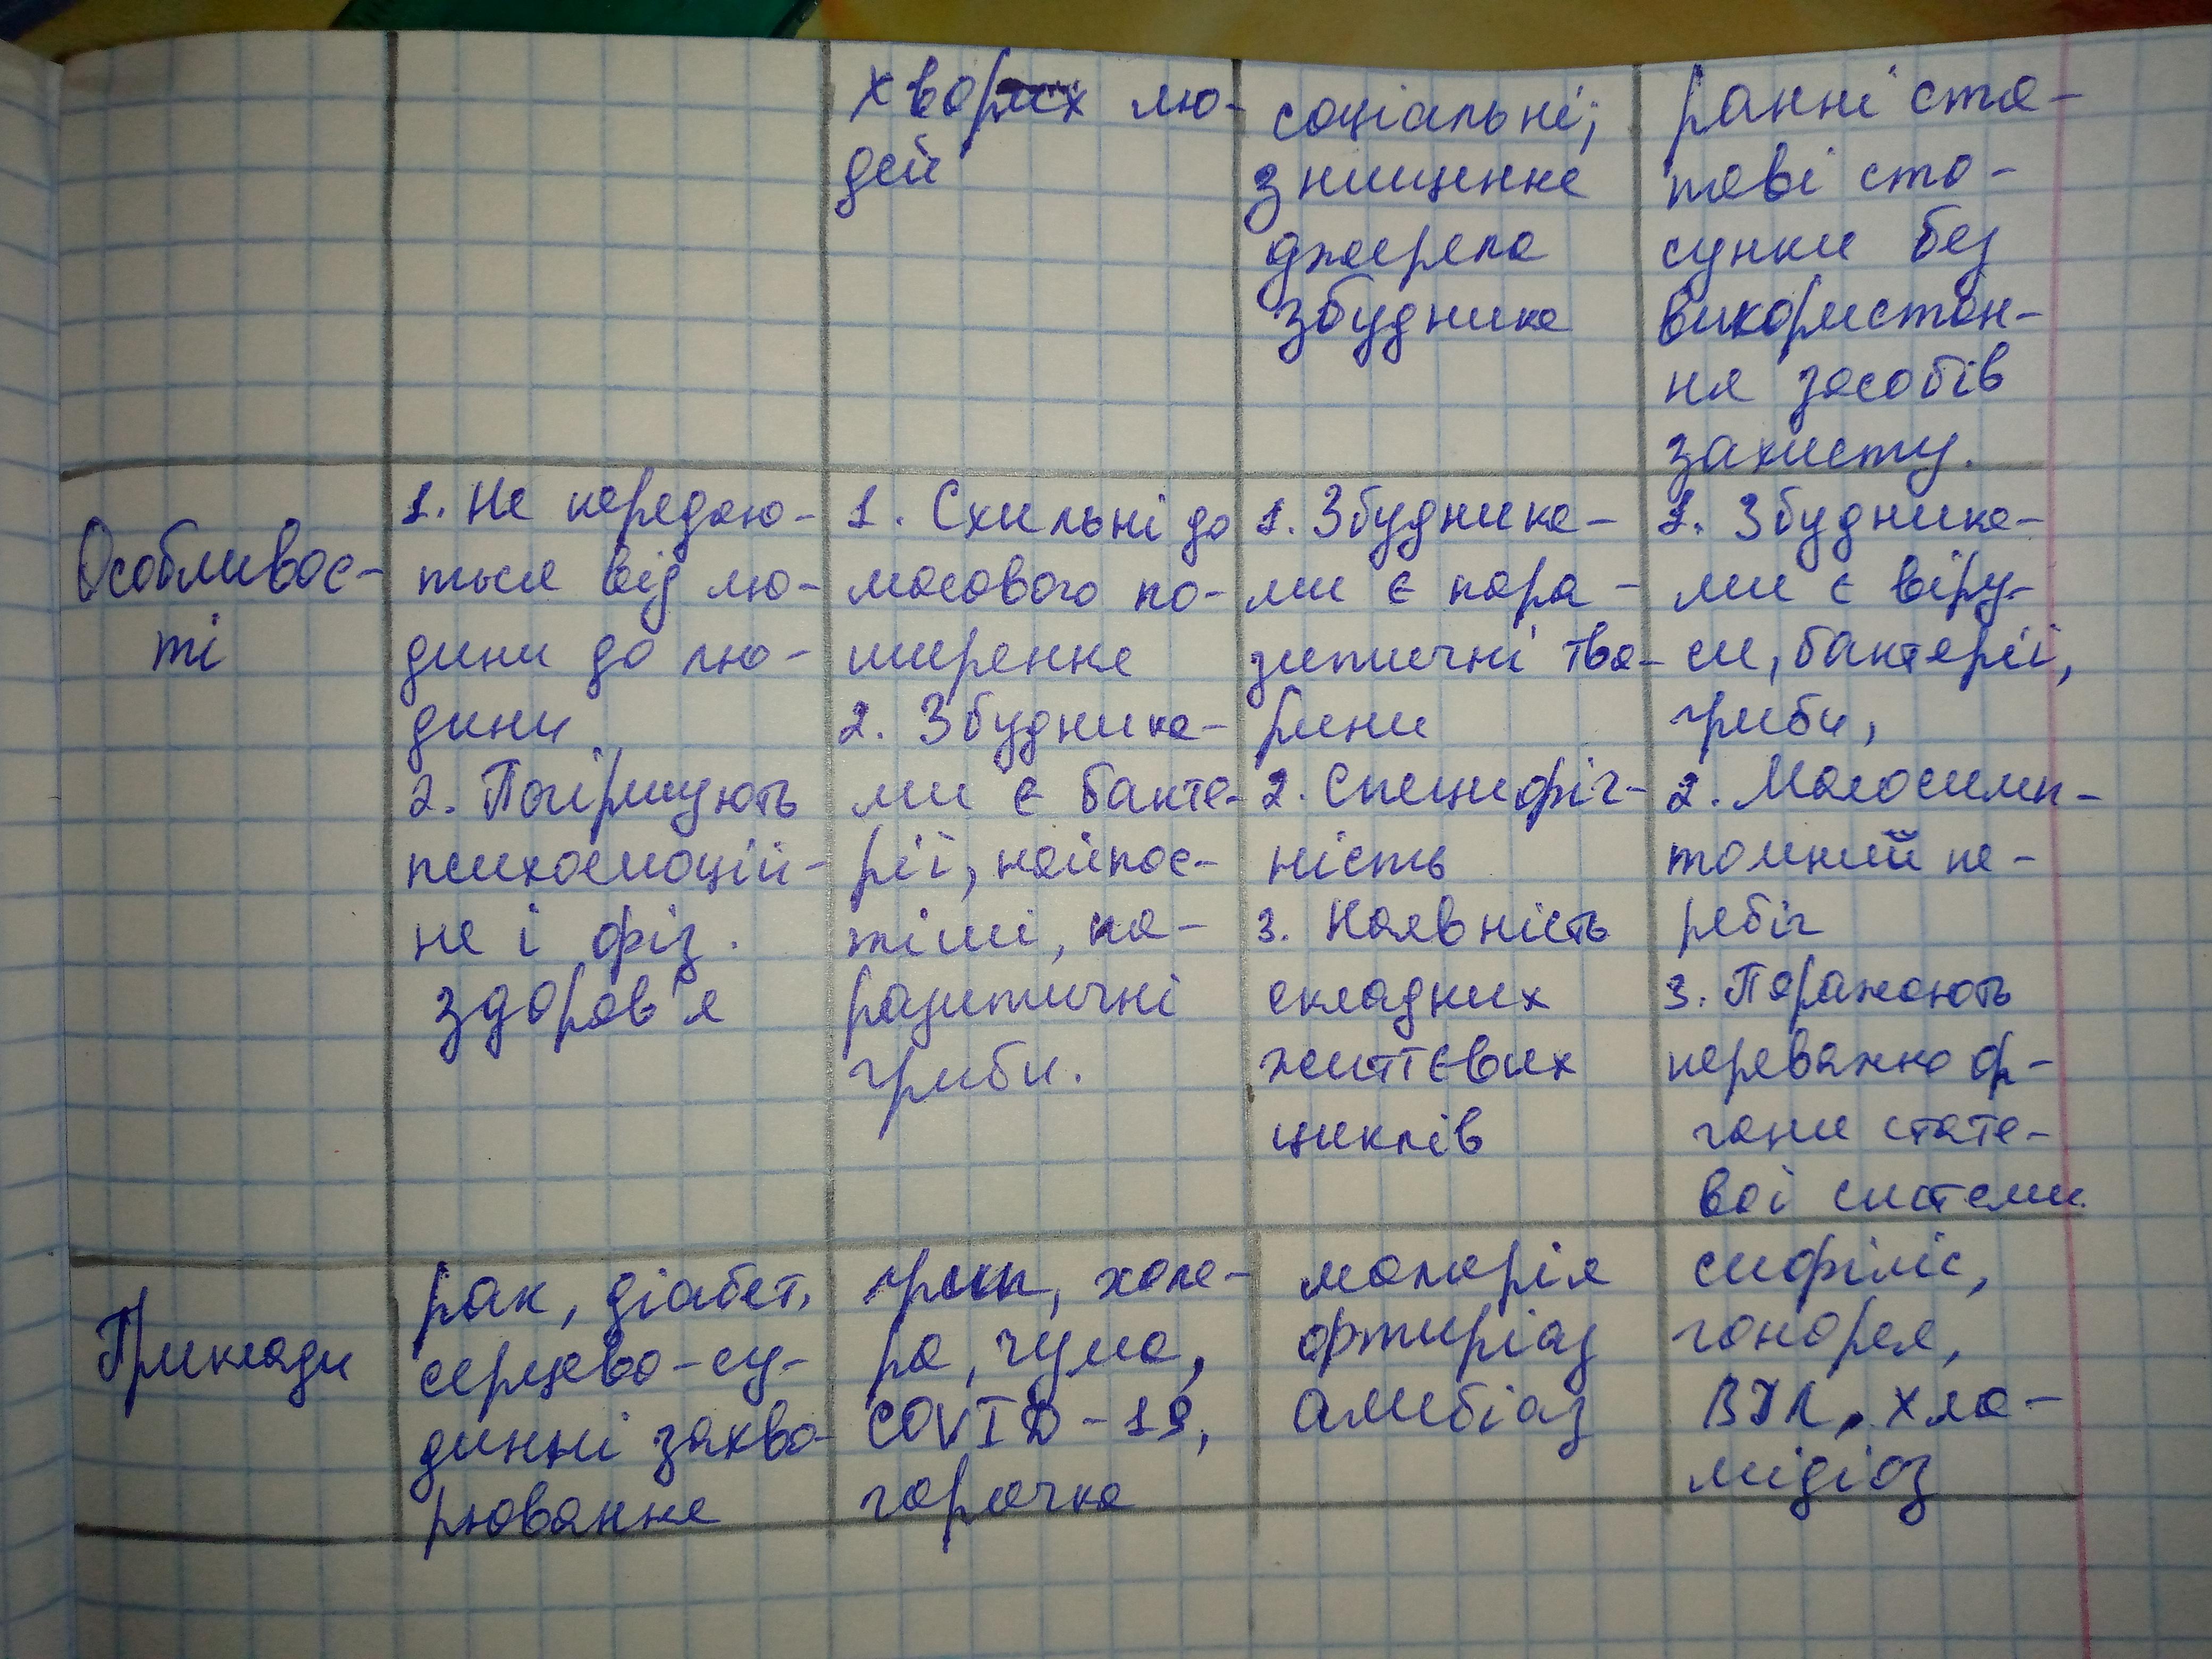 хворих лю-
дей
соціальні;
знищення
джерела
збудника
ранні ста-
теві сто-
сунки без
використан-
ня засобів
захисту.
Особливос-
ті
1. Не передаю-
ться від лю-
дини до лю-
дини
2. Погіршують
психоемоцій-
не і фіз.
здоров'я
1. Схильні до
масового по-
ширення
2. Збудника-
ми є бакте-
рії, найпос-
тіші, па-
разитичні
гриби.
1. Збудника-
ми є пара-
зитичні тва-
рини
2. Специфіч-
ність
3. Наявність
складних
життєвих
циклів
1. Збудника-
ми є віру-
си, бактерії,
гриби,
2. Малосимп-
томний пе-
ребіг
3. Поражають
переважно ор-
гани стате-
вої системи
Приклади
рак, діабет,
серцево-су-
динні захво-
рювання
грип, холе-
ра, чума,
COVID-19,
гарячка
малярія
амебіаз
сифіліс,
гонорея,
ВІЛ, хла-
мідіоз